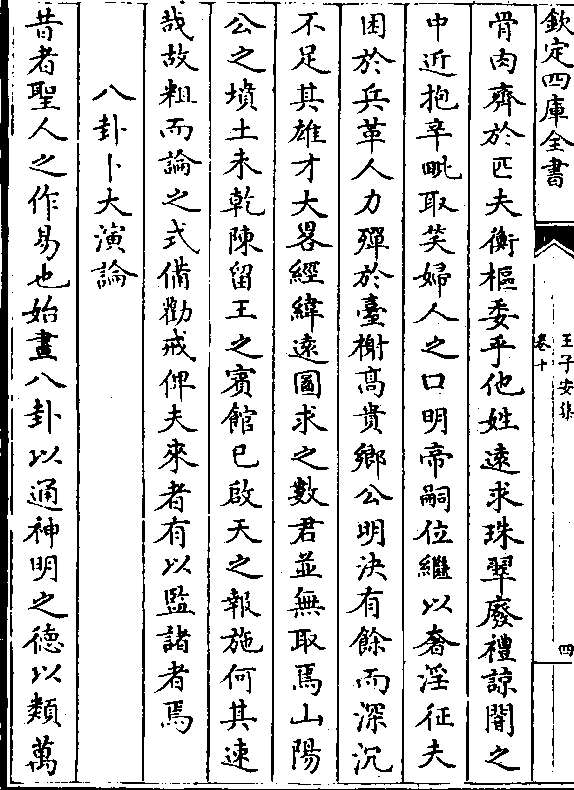 欽定四庫全書
王子安集
卷十
四
骨肉齊於匹夫衡樞委乎他姓遠求珠翠廢禮諒闇之
中近抱辛毗取笑婦人之口明帝嗣位繼以奢淫征夫
困於兵革人力殫於臺榭高貴鄉公明決有餘而深沉
不足其雄才大畧經緯遠圖求之數君並無取焉山陽
公之墳土未乾陳留王之賓館已啟天之報施何其速
哉故粗而論之式備勸戒俾夫來者有以監諸者焉
八卦卜大演論
昔者聖人之作易也始畫八卦以通神明之德以類萬